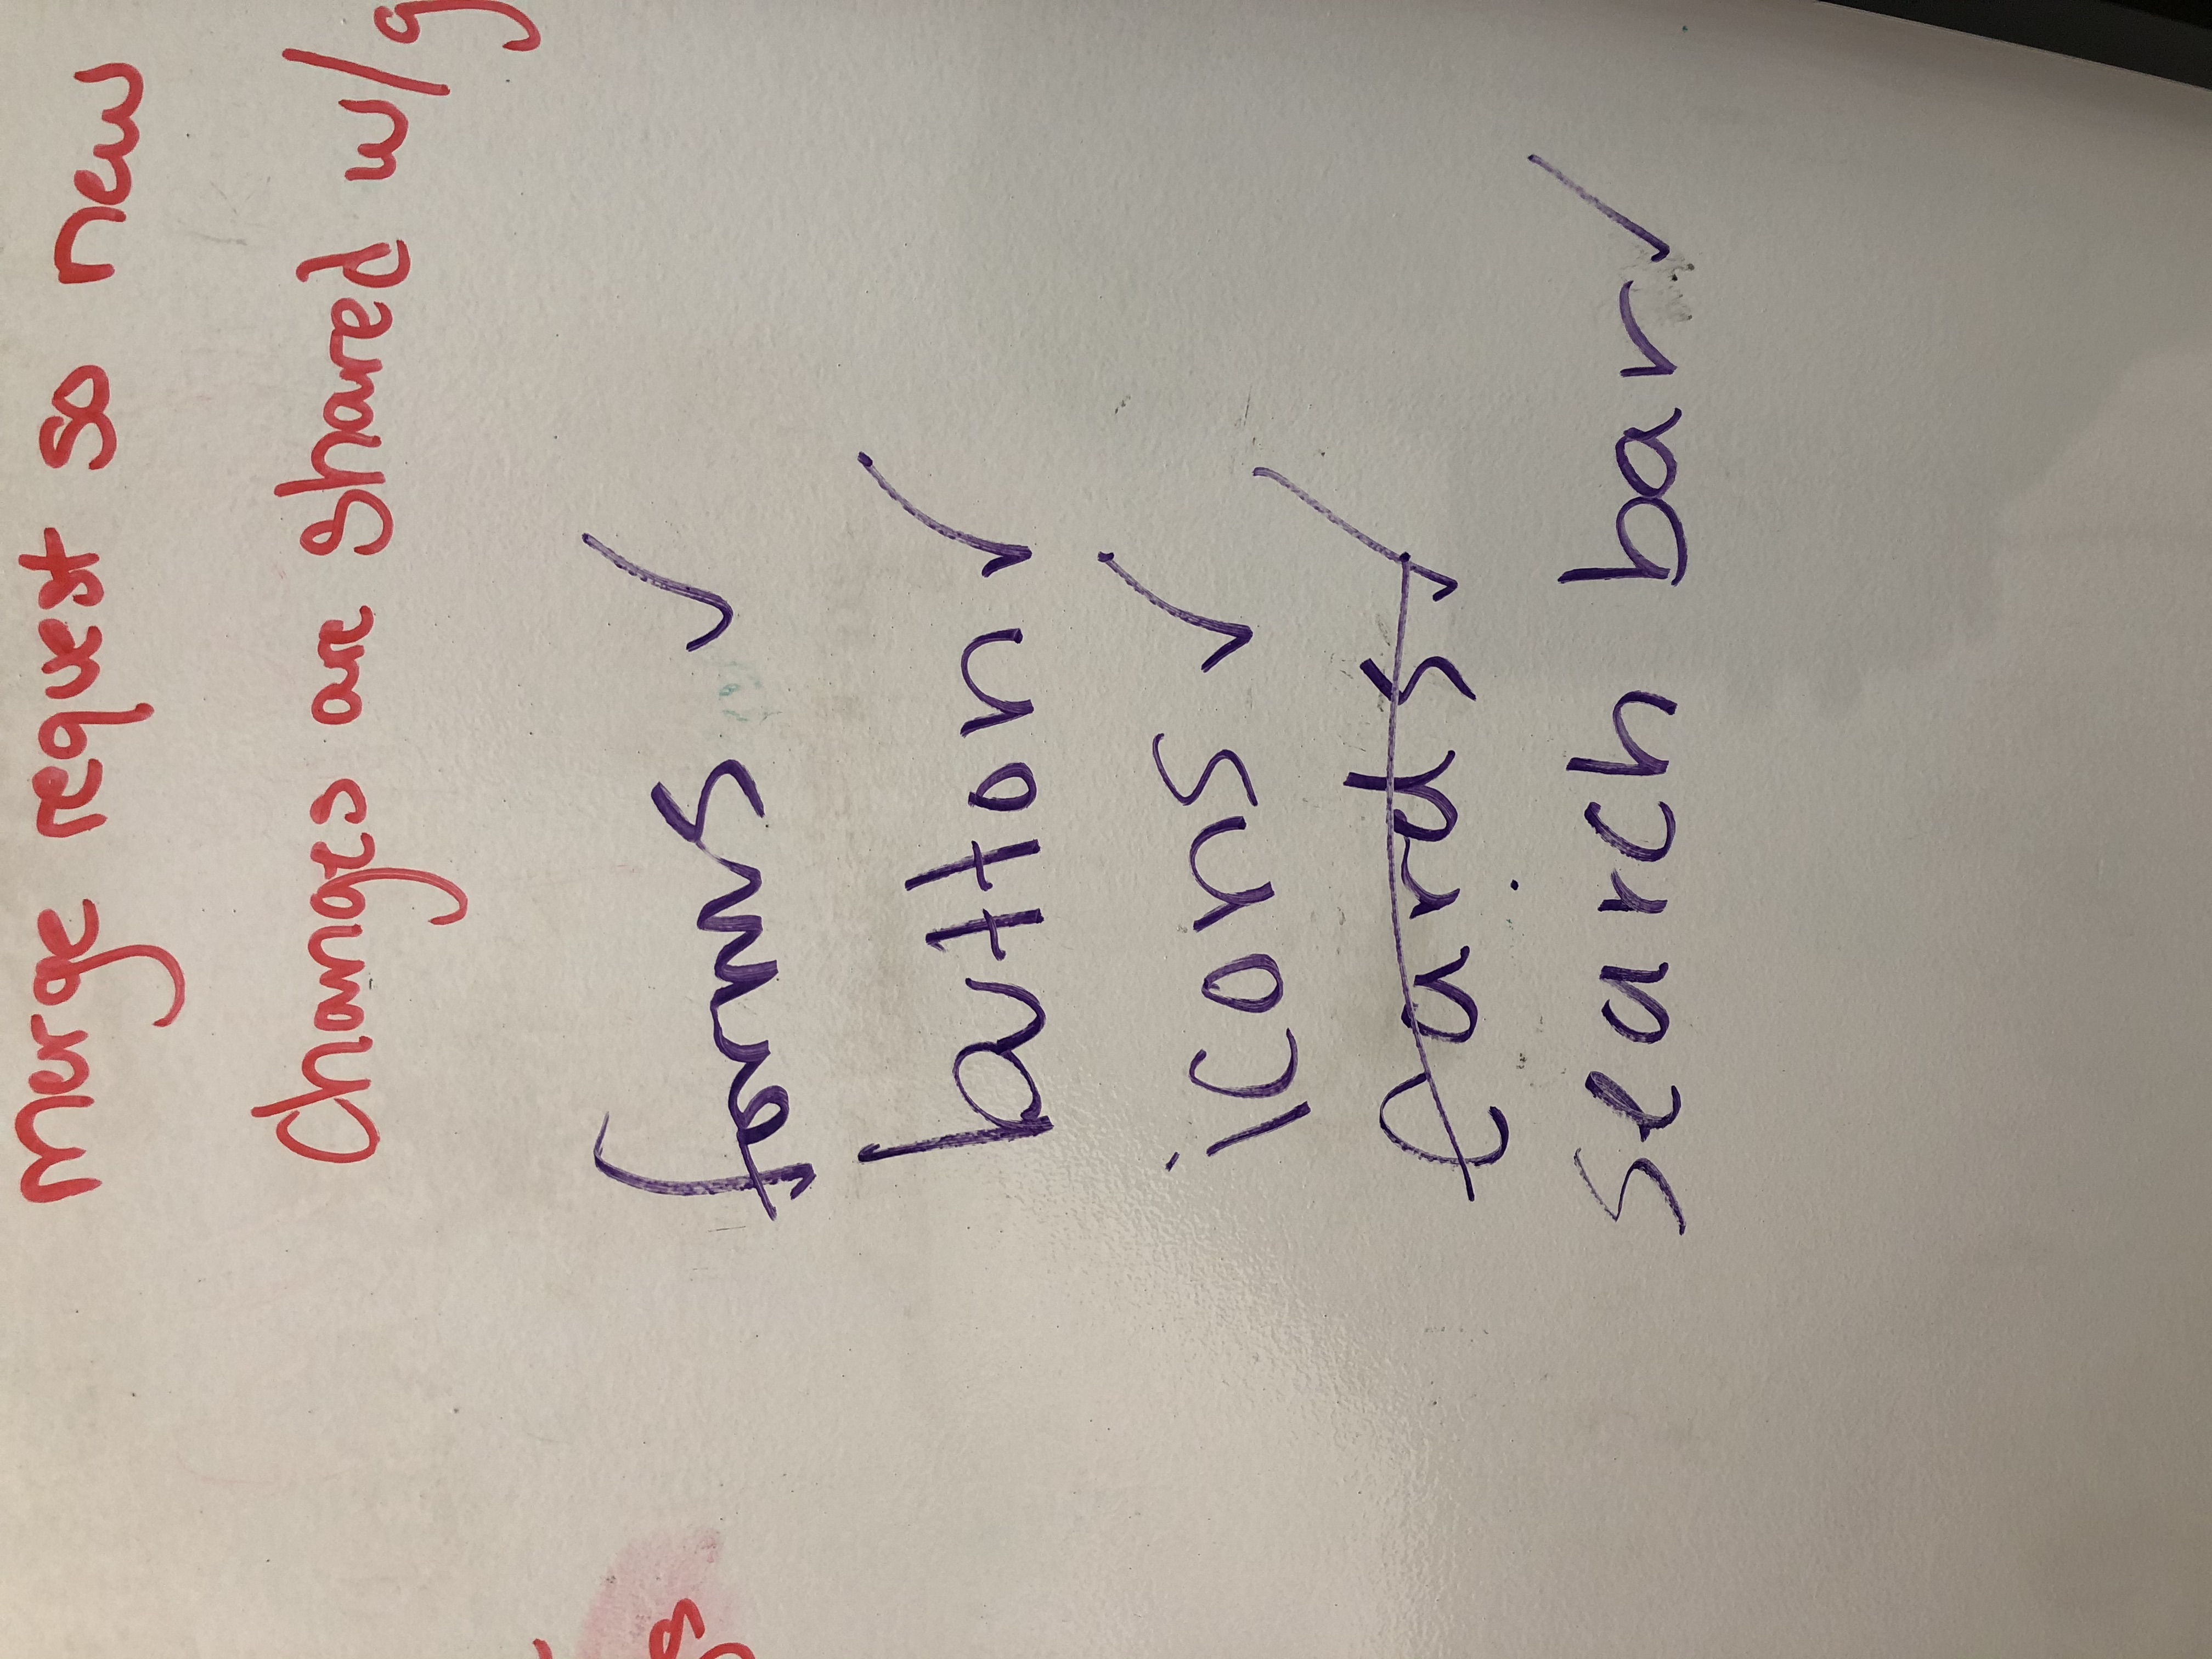 Merge request so new
Changes are shared w/g
forms ✓
button ✓
icons ✓
cards ✓
search bar ✓